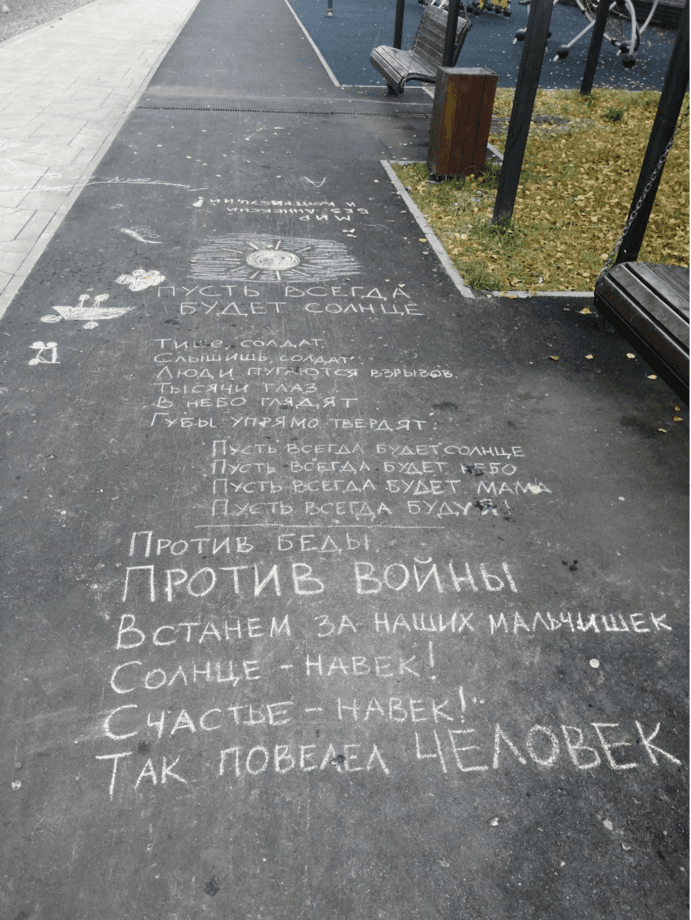 МИР
БЕЗ АННЕКСИЙ
И КОНТРИБУЦИЙ!
ПУСТЬ ВСЕГДА
БУДЕТ СОЛНЦЕ
ТИШЕ, СОЛДАТ,
СЛЫШИШЬ, СОЛДАТ
ЛЮДИ ПУГАЮТСЯ ВЗРЫВОВ.
ТЫСЯЧИ ГЛАЗ
В НЕБО ГЛЯДЯТ
ГУБЫ УПРЯМО ТВЕРДЯТ:
ПУСТЬ ВСЕГДА БУДЕТ СОЛНЦЕ
ПУСТЬ ВСЕГДА БУДЕТ НЕБО
ПУСТЬ ВСЕГДА БУДЕТ МАМА
ПУСТЬ ВСЕГДА БУДУ Я!
ПРОТИВ БЕДЫ,
ПРОТИВ ВОЙНЫ
ВСТАНЕМ ЗА НАШИХ МАЛЬЧИШЕК
СОЛНЦЕ – НАВЕК!
СЧАСТЬЕ – НАВЕК!
ТАК ПОВЕЛЕЛ ЧЕЛОВЕК